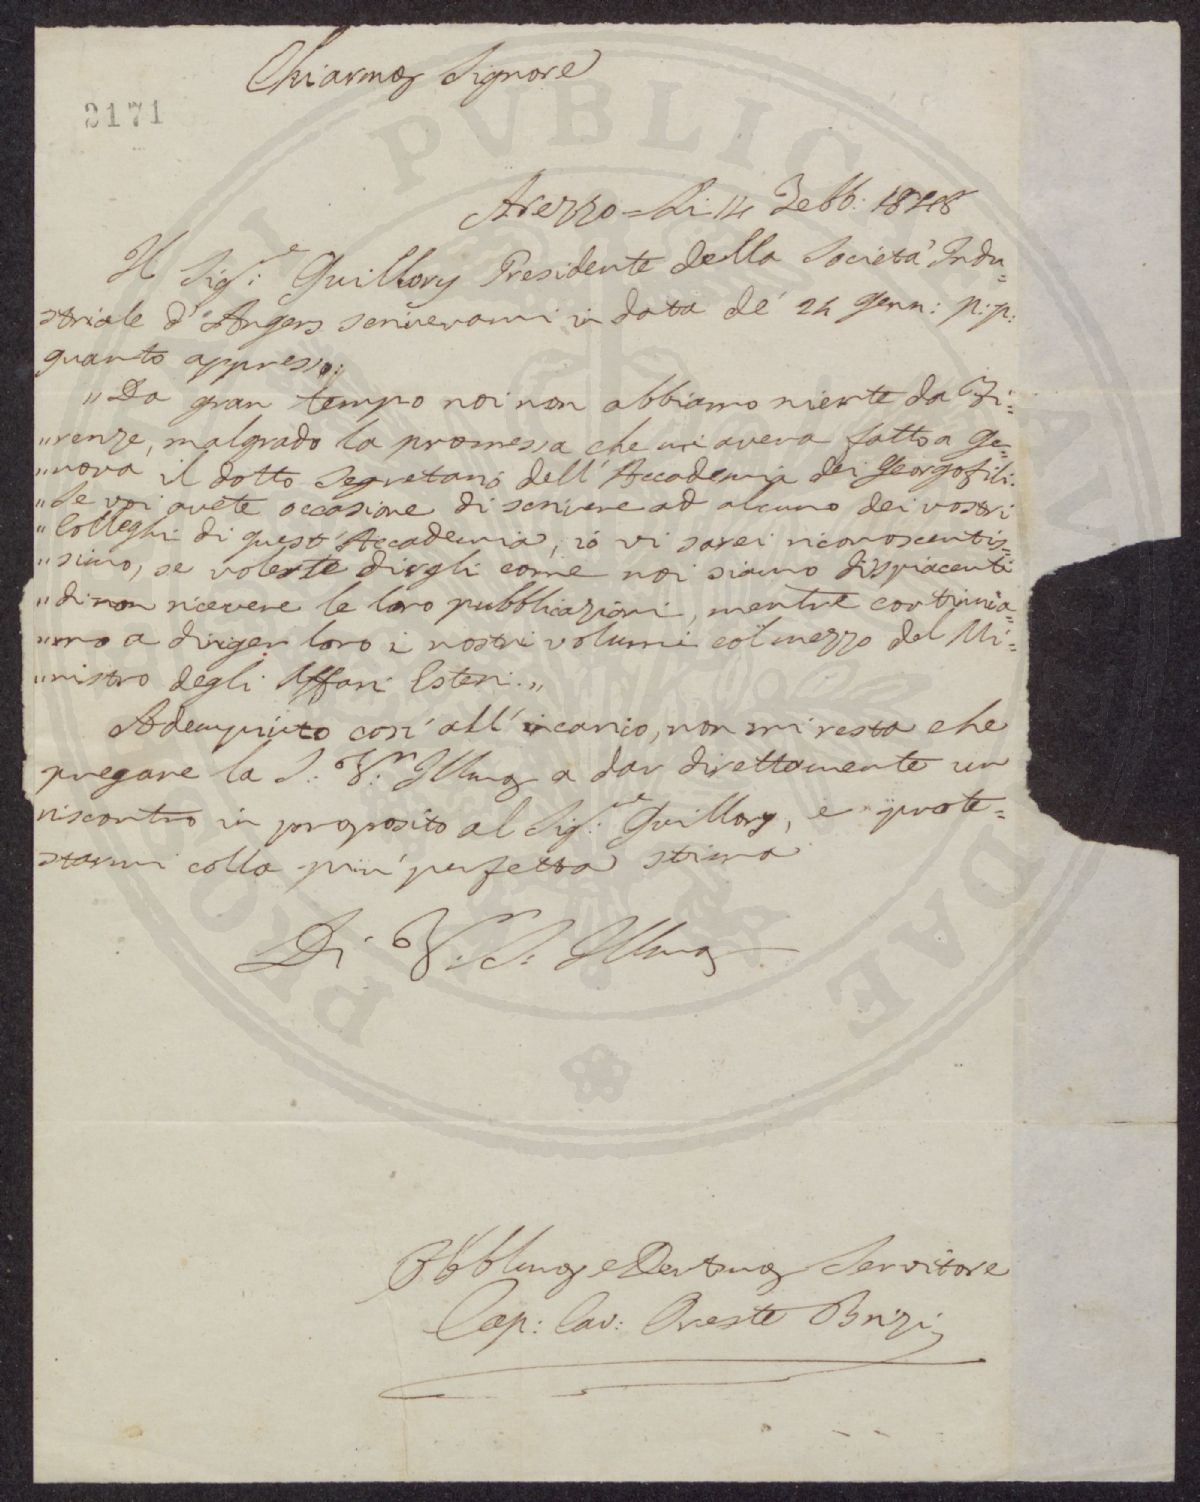 Chiarmo Signore
2171
Arezzo = Li 14 Febb: 1848
Il Sig.e Guillory Presidente della Società Indu=
striale d'Angers scrivevami in data de' 24 genn: p:p:
quanto appresso:
"Da gran tempo noi non abbiamo niente da Fi=
"renze, malgrado la promessa che mi aveva fatto a Ge=
"nova il dotto Segretario dell'Accademia dei Georgofili.
"Se voi avete occasione di scrivere ad alcuno dei vostri
"Colleghi di quest'Accademia, io vi sarei riconoscentis=
"simo, se voleste dirgli come noi siamo dispiacenti
"di non ricevere le loro pubblicazioni, mentre continuia=
"mo a diriger loro i nostri volumi col mezzo del Mi=
"nistro degli Affari Esteri."
Adempiuto così all'incarico, non mi resta che
pregare la S: V:ra Illma a dar direttamente un
riscontro in proposito al Sig.e Guillory, e prote=
starmi colla più perfetta stima
Di V: S: Illma
Obblmo e Devtmo Servitore
Cap: Cav: Oreste Brizi
PROBATAE PVBLICAE